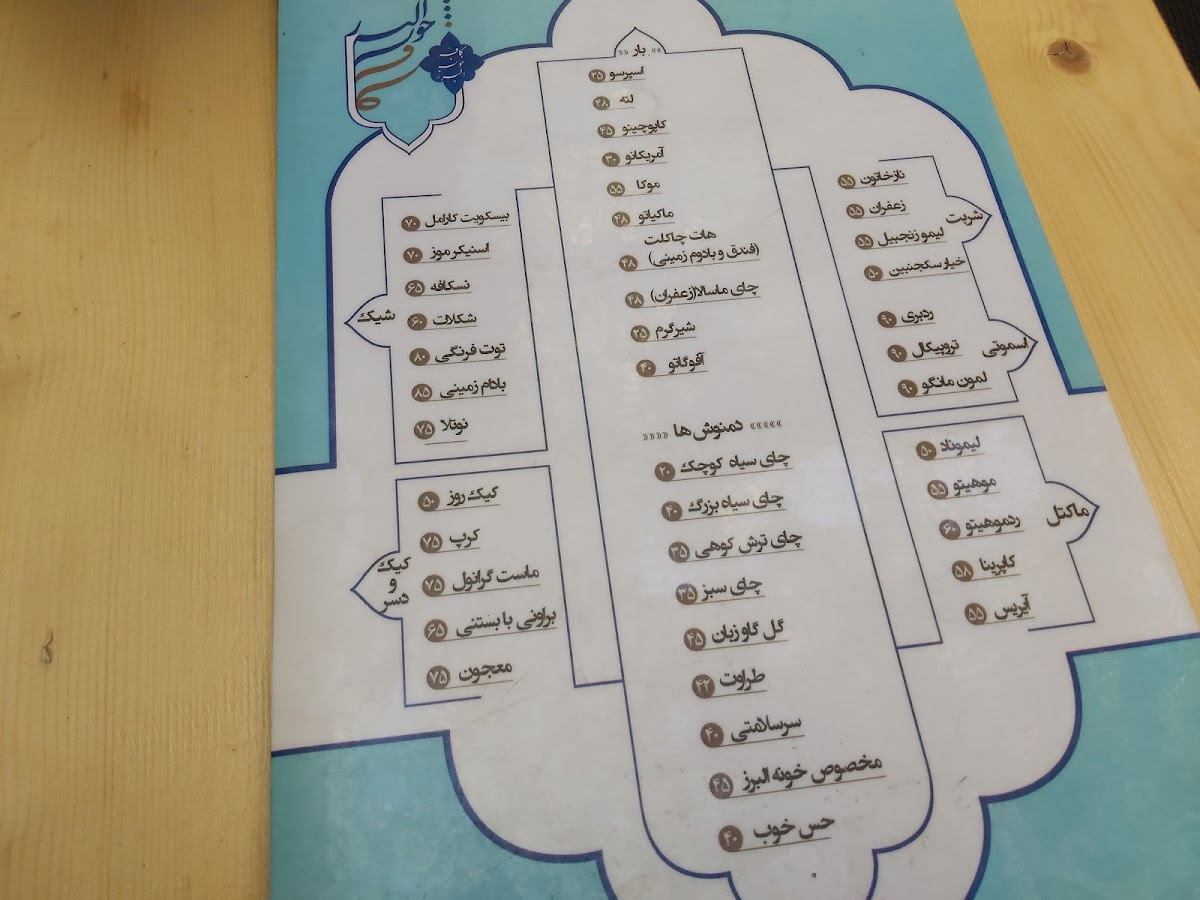 کافه
خونه
البرز
»» بار ««
اسپرسو ۳۵
لته ۴۸
کاپوچینو ۴۵
آمریکانو ۳۰
موکا ۵۵
ماکیاتو ۴۸
هات چاکلت
(فندق و بادوم زمینی) ۴۸
چای ماسالا(زعفران) ۴۸
شیرگرم ۲۵
آفوگاتو ۴۰
»»»» دمنوش ها ««««
چای سیاه کوچک ۲۰
چای سیاه بزرگ ۴۰
چای ترش کوهی ۳۵
چای سبز ۳۵
گل گاو زبان ۴۵
طراوت ۴۲
سرسلامتی ۴۰
مخصوص خونه البرز ۴۵
حس خوب ۴۰
شربت
نازخاتون ۵۵
زعفران ۵۵
لیمو زنجبیل ۵۵
خیار سکنجبین ۵۰
اسموتی
ردبری ۹۰
تروپیکال ۹۰
لمون مانگو ۹۰
ماکتل
لیموناد ۵۰
موهیتو ۵۵
ردموهیتو ۶۰
کاپرینا ۵۸
آیریس ۵۵
شیک
بیسکویت کارامل ۷۰
اسنیکر موز ۷۰
نسکافه ۶۵
شکلات ۶۰
توت فرنگی ۸۰
بادام زمینی ۸۵
نوتلا ۷۵
کیک
و
دسر
کیک روز ۵۰
کرپ ۷۵
ماست گرانول ۷۵
براونی با بستنی ۶۵
معجون ۷۵